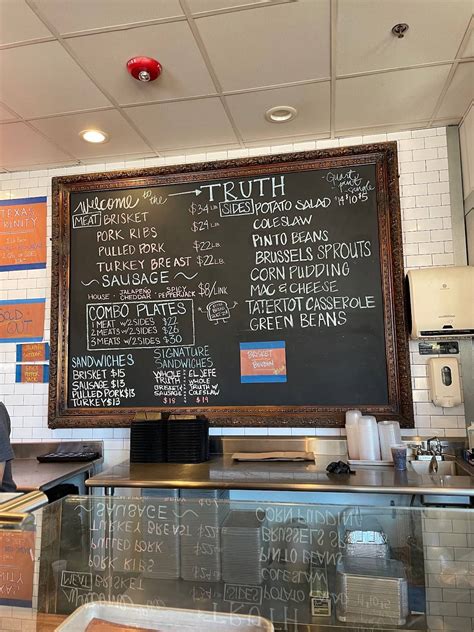 Welcome to the TRUTH
MEAT
BRISKET $34 LB
PORK RIBS $24 LB
PULLED PORK $22 LB
TURKEY BREAST $22 LB
SAUSAGE
HOUSE JALAPEÑO CHEDDAR SPICY PEPPERJACK $8/LINK
COMBO PLATES
1 MEAT W/2 SIDES $22
2 MEATS W/2 SIDES $26
3 MEATS W/2 SIDES $30
SANDWICHES
BRISKET $15
SAUSAGE $13
PULLED PORK $13
TURKEY $13
SIGNATURE SANDWICHES
WHOLE TRUTH
BRISKET
SAUSAGE
$18
EL JEFE
WHOLE TRUTH W/
COLESLAW
$19
SIDES
Quart pint single
POTATO SALAD
COLESLAW
PINTO BEANS
BRUSSELS SPROUTS
CORN PUDDING
MAC & CHEESE
TATERTOT CASSEROLE
GREEN BEANS
BRISKET
TEXAS
TRINITY
SOLD OUT